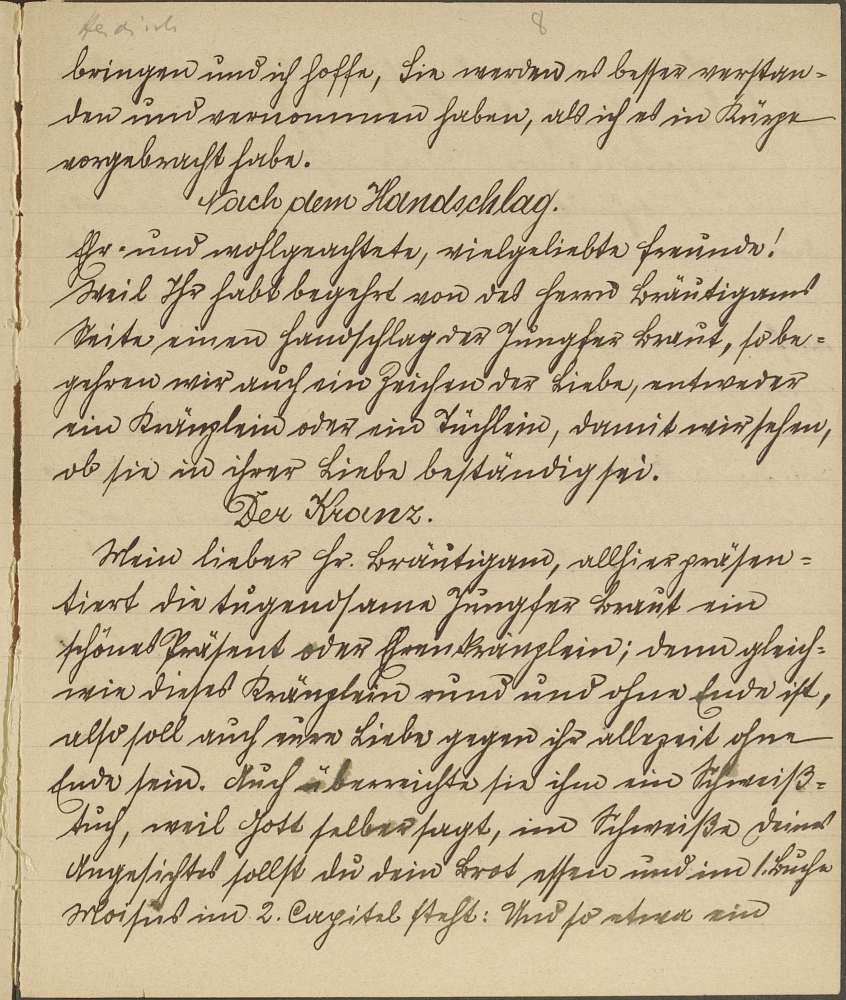 8
bringen und ich hoffe, Sie werden es besser verstan-
den und vernommen haben, als ich es in Kürze
vorgebracht habe.
Nach dem Handschlag.
Ehr- und wohlgeachtete, vielgeliebte Freunde!
Weil Ihr habt begehrt von des Herrn Bräutigams
Seite einen Handschlag der Jungfer Braut, so be-
gehren wir auch ein Zeichen der Liebe, entweder
ein Kränzlein oder ein Tüchlein, damit wir sehen,
ob sie in ihrer Liebe beständig sei.
Der Kranz.
Mein lieber Hr. Bräutigam, allhier präsen-
tiert die tugendsame Jungfer Braut ein
schönes Präsent oder Ehrenkränzlein; denn gleich-
wie dieses Kränzlein rund und ohne Ende ist,
also soll auch eure Liebe gegen ihr allezeit ohne
Ende sein. Auch überreichte sie ihm ein Schweiß-
tuch, weil Gott selber sagt, im Schweiße deines
Angesichtes sollst du dein Brot essen und im 1. Buche
Moises im 2. Capitel steht: Und so etwa ein